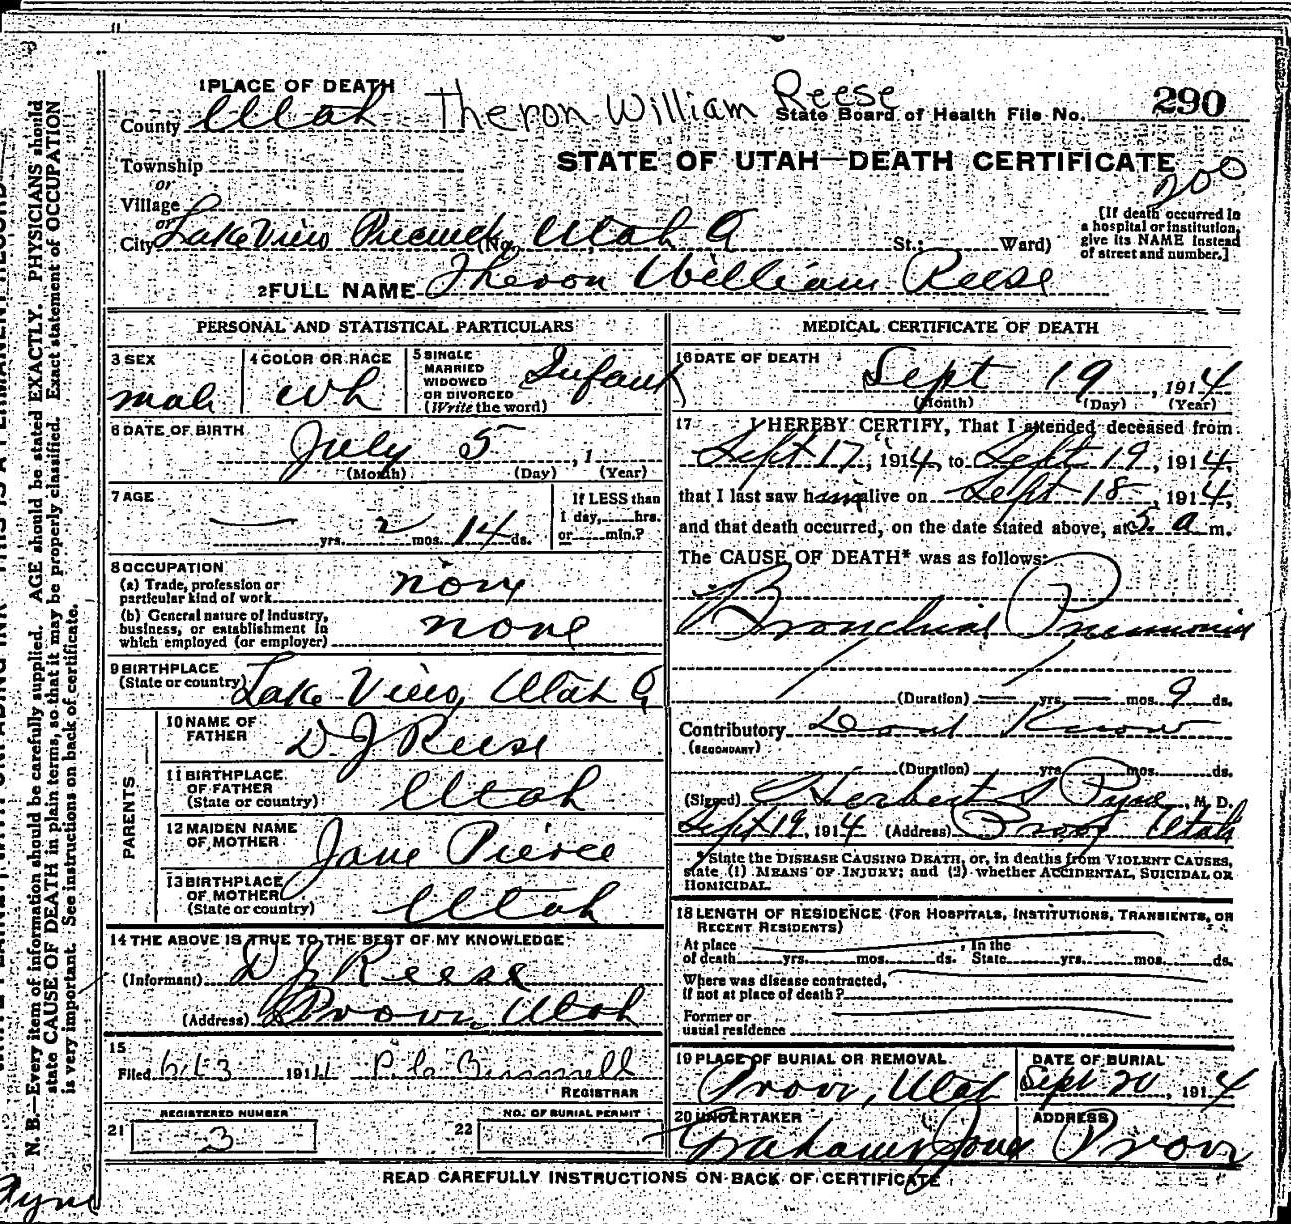 1 PLACE OF DEATH
County Utah Theron William Reese State Board of Health File No. 290
Township
or
Village
or
STATE OF UTAH—DEATH CERTIFICATE
200
City Lake View Precinct (No. Utah St.; Ward)
[If death occurred in
a hospital or institution,
give its NAME instead
of street and number.]
2 FULL NAME Theron William Reese
PERSONAL AND STATISTICAL PARTICULARS
3 SEX
male
4 COLOR OR RACE
wh
5 SINGLE
MARRIED
WIDOWED
OR DIVORCED
(Write the word)
Infant
6 DATE OF BIRTH
July 5, 1
(Month) (Day) (Year)
7 AGE
— yrs. 2 mos. 14 ds.
If LESS than
1 day, hrs.
or min.?
8 OCCUPATION
(a) Trade, profession or
particular kind of work none
(b) General nature of industry,
business, or establishment in
which employed (or employer) none
9 BIRTHPLACE
(State or country) Lake View, Utah
PARENTS
10 NAME OF
FATHER D J Reese
11 BIRTHPLACE
OF FATHER
(State or country) Utah
12 MAIDEN NAME
OF MOTHER Jane Pierce
13 BIRTHPLACE
OF MOTHER
(State or country) Utah
14 THE ABOVE IS TRUE TO THE BEST OF MY KNOWLEDGE
(Informant) D J Reese
(Address) Provo, Utah
15
Filed 191
REGISTRAR
REGISTERED NUMBER
21 3
NO. OF BURIAL PERMIT
22
MEDICAL CERTIFICATE OF DEATH
16 DATE OF DEATH
Sept 19, 1914
(Month) (Day) (Year)
17 I HEREBY CERTIFY, That I attended deceased from
Sept 17, 1914, to Sept 19, 1914,
that I last saw him alive on Sept 18, 1914,
and that death occurred, on the date stated above, at 5 a m.
The CAUSE OF DEATH* was as follows:
Bronchial Pneumonia
(Duration) — yrs. — mos. 9 ds.
Contributory Dont Know
(SECONDARY)
(Duration) yrs. mos. ds.
(Signed) Herbert S Pyne, M. D.
Sept 19, 1914 (Address) Provo Utah
* State the DISEASE CAUSING DEATH, or, in deaths from VIOLENT CAUSES,
state (1) MEANS OF INJURY; and (2) whether ACCIDENTAL, SUICIDAL OR
HOMICIDAL.
18 LENGTH OF RESIDENCE (FOR HOSPITALS, INSTITUTIONS, TRANSIENTS, OR
RECENT RESIDENTS)
At place In the
of death yrs. mos. ds. State yrs. mos. ds.
Where was disease contracted,
if not at place of death?
Former or
usual residence
19 PLACE OF BURIAL OR REMOVAL
Provo, Utah
DATE OF BURIAL
Sept 20, 1914
20 UNDERTAKER
Graham Jones
ADDRESS
Provo
READ CAREFULLY INSTRUCTIONS ON BACK OF CERTIFICATE
N. B.—Every item of information should be carefully supplied. AGE should be stated EXACTLY. PHYSICIANS should
state CAUSE OF DEATH in plain terms, so that it may be properly classified. Exact statement of OCCUPATION
is very important. See instructions on back of certificate.
Pyne